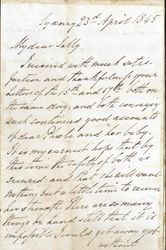 Sydney 23rd April 1845
My dear Sally
I received with much satis
faction and thankfulness your
letters of the 15th and 17th both on
the same day, and both conveyed
such continued good accounts
of dear and her baby.
It is my earnest hope that by
this time the safety of both is
secured and that she will want
nothing but a little time to recover
her strength. There are so many
things on hand still that it is
impossible I could get away just
without